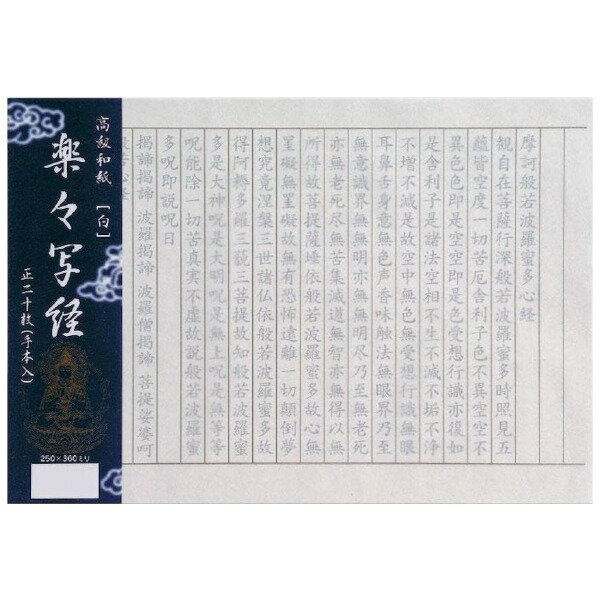 高級和紙［白］
楽々写経
正二十枚(手本入)
250×360ミリ
摩訶般若波羅蜜多心経
観自在菩薩行深般若波羅蜜多時照見五
蘊皆空度一切苦厄舎利子色不異空空不
異色色即是空空即是色受想行識亦復如
是舎利子是諸法空相不生不滅不垢不浄
不増不減是故空中無色無受想行識無眼
耳鼻舌身意無色声香味触法無眼界乃至
無意識界無無明亦無無明尽乃至無老死
亦無老死尽無苦集滅道無智亦無得以無
所得故菩提薩埵依般若波羅蜜多故心無
罣礙無罣礙故無有恐怖遠離一切顛倒夢
想究竟涅槃三世諸仏依般若波羅蜜多故
得阿耨多羅三藐三菩提故知般若波羅蜜
多是大神呪是大明呪是無上呪是無等等
呪能除一切苦真実不虚故説般若波羅蜜
多呪即説呪曰
揭諦揭諦 波羅揭諦 波羅僧揭諦 菩提娑婆呵
般若心経